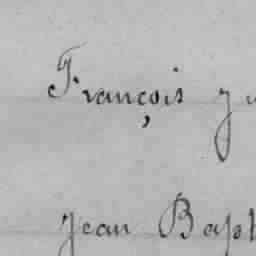 François
Jean Bapt